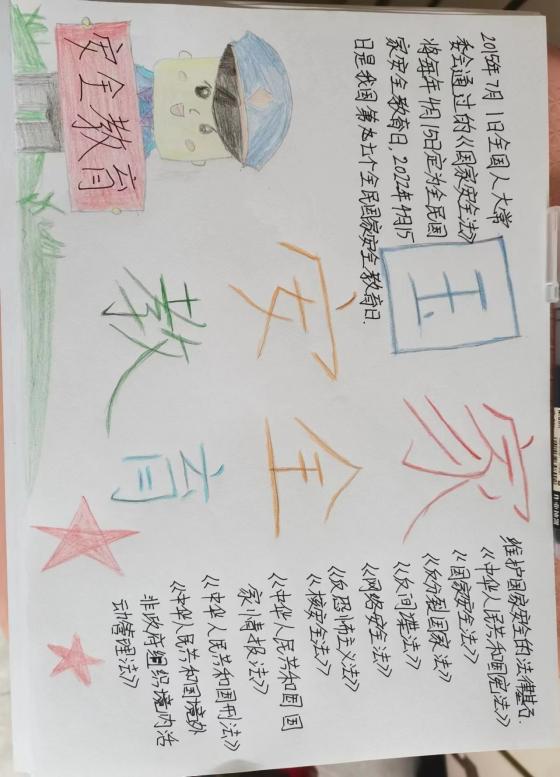 安全教育
2015年7月1日全国人大常
委会通过的《国家安全法》
将每年4月15日定为全民国
家安全教育日,2022年4月15
日是我国第七个全民国家安全教育日.
国家
安全
教育
维护国家安全的法律基石.
《中华人民共和国宪法》
《国家安全法》
《反分裂国家法》
《反间谍法》
《网络安全法》
《反恐怖主义法》
《核安全法》
《中华人民共和国国
家情报法》
《中华人民共和国刑法》
《中华人民共和国境外
非政府组织境内活
动管理法》